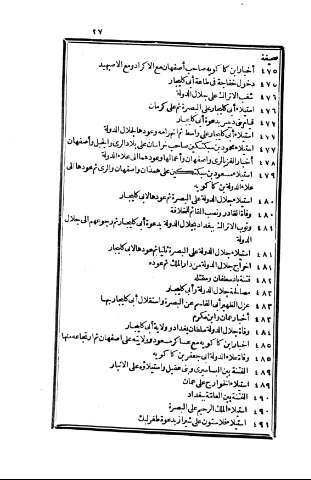 ٢٧
صحيفة
٤٧٥ أخبار ابن كاكويه صاحب أصفهان مع الاكراد ومع الاصبهبد
٤٧٥ دخول خفاجة في طاعة أبي كاليجار
٤٧٦ شغب الاتراك على جلال الدولة
٤٧٦ استيلاء أبي كاليجار على البصرة ثم على كرمان
٤٧٧ قيام بني دبيس بدعوة أبي كاليجار
٤٧٧ استيلاء أبي كاليجار على واسط ثم انهزامه وعودها لجلال الدولة
٤٧٧ استيلاء محمود بن سبكتكين صاحب خراسان على بلاد الري والجبل وأصفهان
٤٧٨ أخبار الغز بالري وأصفهان وأعمالها وعودهما الى علاء الدولة
٤٧٩ استيلاء مسعود بن سبكتكين على همذان وأصفهان والري ثم عودها الى
علاء الدولة بن كاكويه
٤٨٠ استيلاء جلال الدولة على البصرة ثم عودها لابي كاليجار
٤٨٠ وفاة القادر ونصب القائم للخلافة
٤٨٠ وثوب الاتراك ببغداد بجلال الدولة بدعوة أبي كاليجار ثم رجوعهم الى جلال
الدولة
٤٨١ استيلاء جلال الدولة على البصرة ثانيا ثم عودها لابي كاليجار
٤٨١ اخراج جلال الدولة من دار الملك ثم عوده
٤٨٢ فتنة بادسطفان ومقتله
٤٨٢ مصالحة جلال الدولة وأبي كاليجار
٤٨٣ عزل الظهير أبي القاسم عن البصرة واستقلال أبي كاليجار بها
٤٨٣ أخبار عمان وابن مكرم
٤٨٤ وفاة جلال الدولة سلطان بغداد وولاية أبي كاليجار
٤٨٥ أخبار ابن كاكويه مع عساكر مسعود وولايته على أصفهان ثم ارتجاعه منها
٤٨٥ وفاة علاء الدولة أبي جعفر بن كاكويه
٤٨٩ الفتنة بين البساسيري وبني عقيل واستيلاؤه على الانبار
٤٨٩ استيلاء الخوارج على عمان
٤٩٠ الفتنة بين العامة ببغداد
٤٩٠ استيلاء الملك الرحيم على البصرة
٤٩١ استيلاء فلاستون على شيراز بدعوة طغرلبك